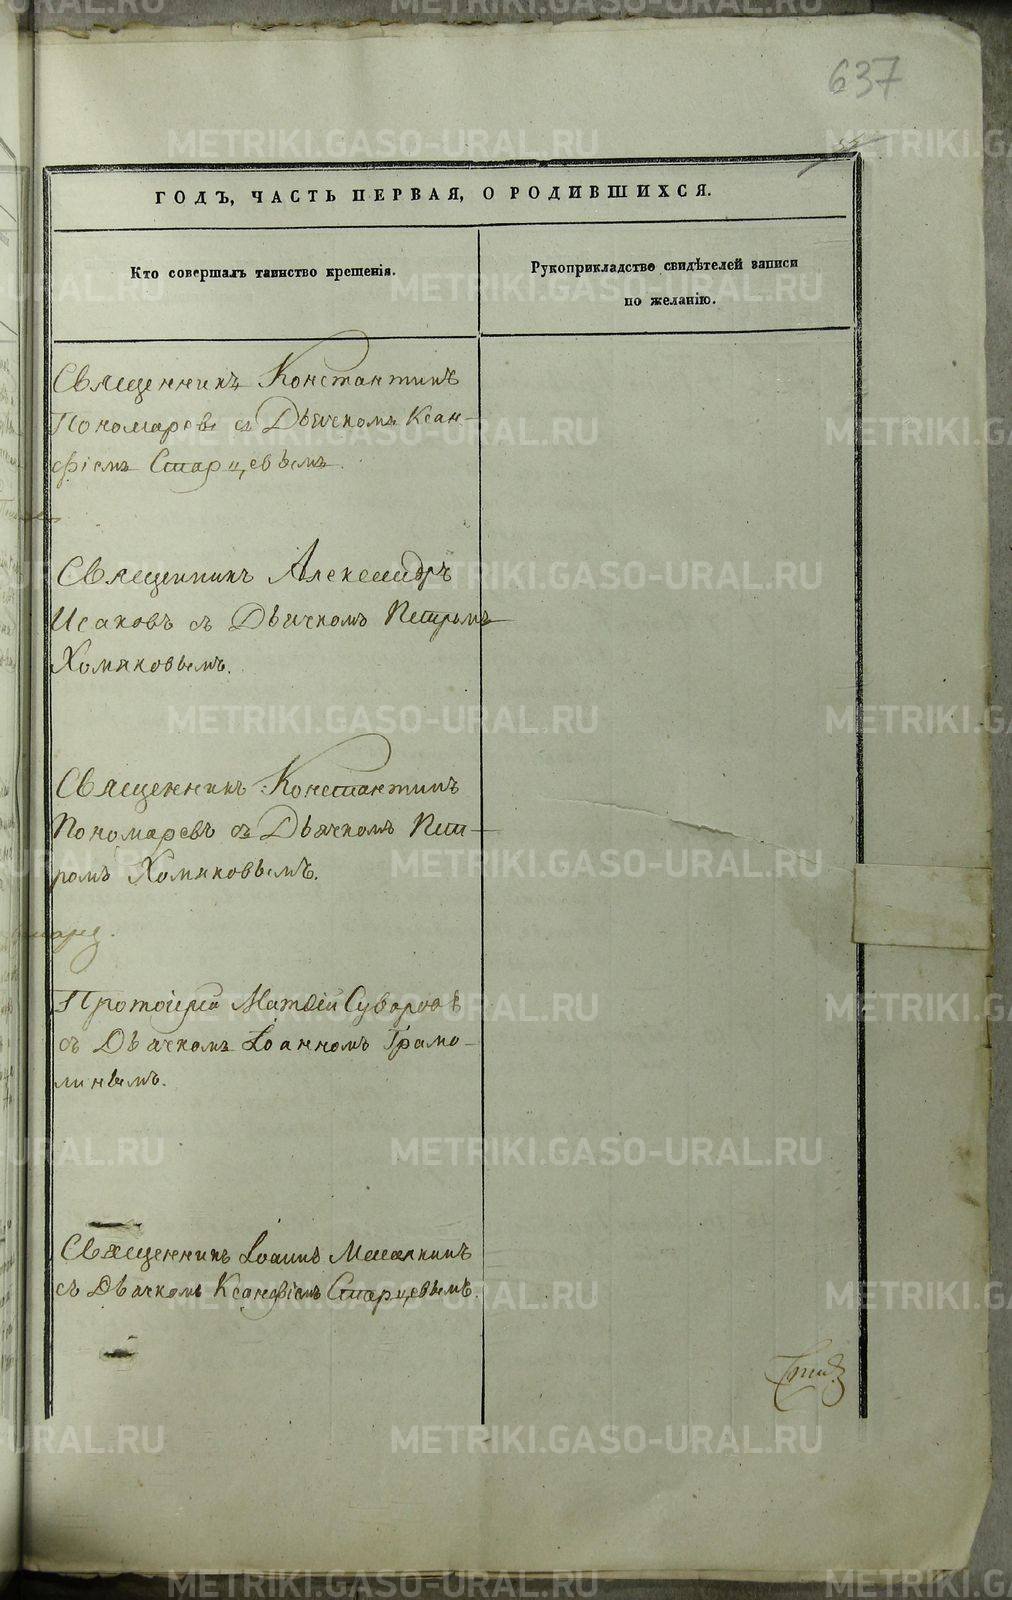 637
ГОДЪ, ЧАСТЬ ПЕРВАЯ, О РОДИВШИХСЯ.
Кто совершалъ таинство крещенія.
Рукоприкладство свидѣтелей записи
по желанію.
Священникъ Константинъ
Пономаревъ съ Дьячкомъ Ксан-
фіемъ Старцевымъ.
Священникъ Александръ
Исаковъ съ Дьячкомъ Петромъ
Хомяковымъ.
Священникъ Константинъ
Пономаревъ съ Дьячкомъ Пет-
ромъ Хомяковымъ.
Протоіерей Матѳій Суворовъ
съ Дьячкомъ Іоанномъ Грамо-
линымъ.
Священникъ Іоаннъ
съ Дьячкомъ Ксанфіемъ Старцевымъ.
METRIKI.GASO-URAL.RU